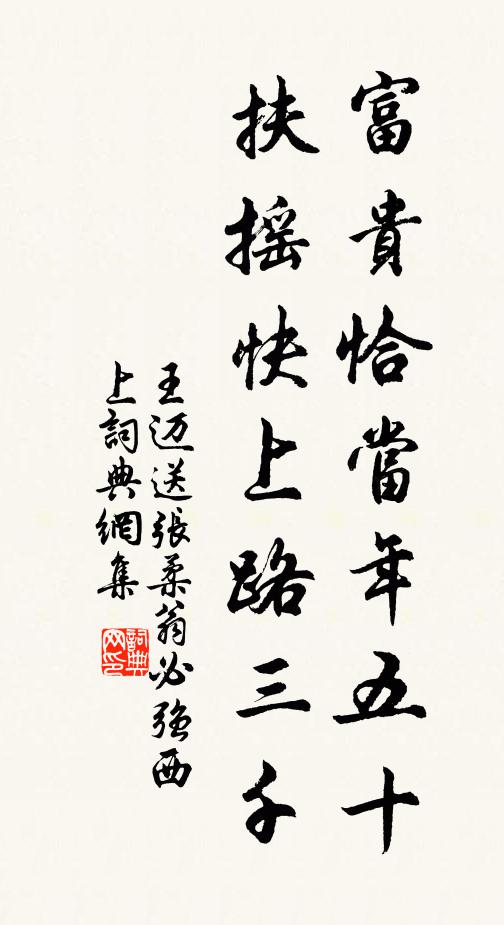 富貴恰當年五十
扶摇快上路三千
王迈送張柔翁必強西
上詞典網集
詞典网印